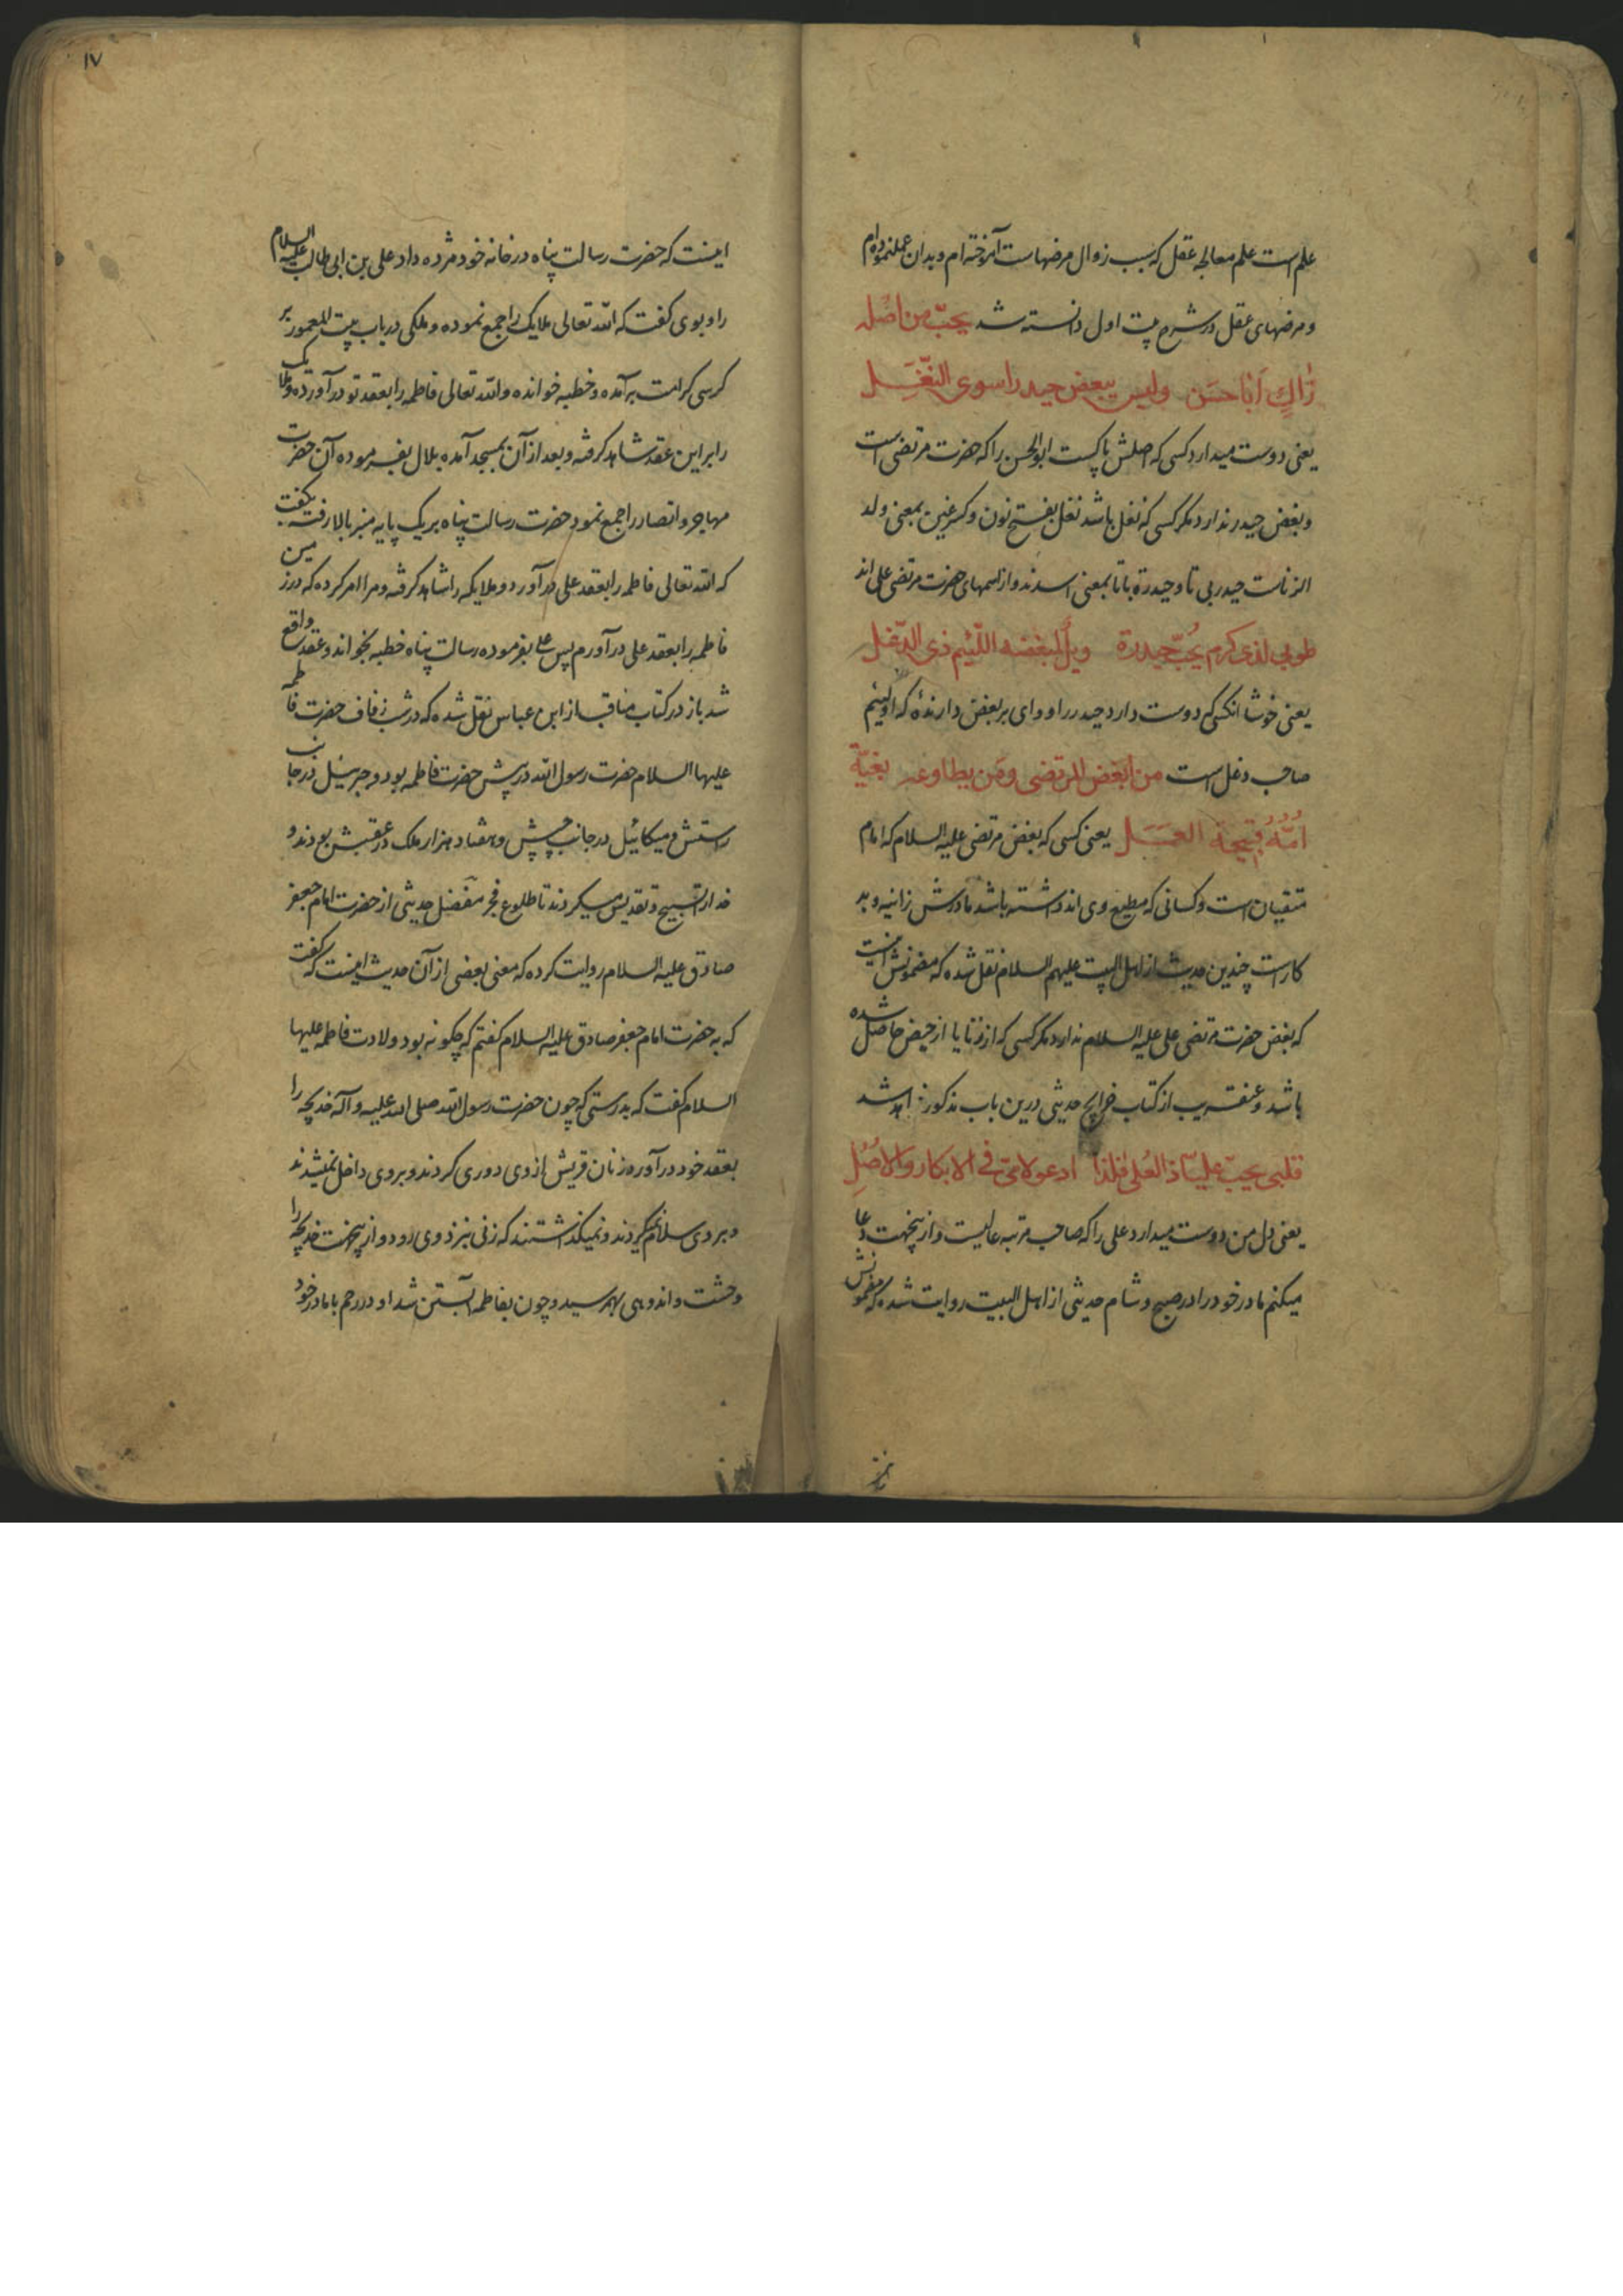 علم است علم معالجه عقل که سبب زوال مرضهاست آموخته‌ام و بدان عمل نموده‌ام
و مرضهای عقل در شرح بیت اول دانسته شد یحبّ من اصله
زاکٍ اَبا حَسَن ولیس یبغض حیدرا سوی النَغِـــل
یعنی دوست میدارد کسی که اصلش پاکست ابوالحسن را که حضرت مرتضی است
و بغض حیدر ندارد مکر کسی که نغل باشد نغل بفتح نون و کسر غین بمعنی ولد
الزناست حیدر بی تا و حیدرة با تا بمعنی اسدند و از اسمهای حضرت مرتضی علی اند
طوبی لذی کرم یُحبّ حیدرة ویلٌ لمبغضه اللّئیم ذی الدّغل
یعنی خوشا انکسی که دوست دارد حیدر را و وای بر بغض دارندهٔ که او لئیم
صاحب دغل است من ابغض المرتضی ومَن یطاوعه بغیّة
اُمُّهُ قبیحة العمـــل یعنی کسی که بغض مرتضی علیه السلام که امام
متقیان است و کسانی که مطیع وی اند داشته باشد مادرش زانیه و بد
کار است چندین حدیث از اهل البیت علیهم السلام نقل شده که مضمونش اینست
که بغض حضرت مرتضی علی علیه السلام ندارد مکر کسی که از زنا یا از حیض حاصل شده
باشد و عنقریب از کتاب خرایج حدیثی درین باب مذکور خواهد شد
قلبی یحبّ علیّاً ذا العُلی فلذا ادعو لامّی فی الابکار والاُصُلِ
یعنی دل من دوست میدارد علی را که صاحب مرتبه عالیست و ازینجهت دعا
میکنم مادر خود را در صبح و شام حدیثی از اهل البیت روایت شده که مضمونش
۱۷
اینست که حضرت رسالت پناه در خانه خود مژده داد علی بن ابی طالب علیه السلام
را و بوی کفت که الله تعالی ملایکه را جمع نموده و ملکی در باب بیت المعمور بر
کرسی کرامت برآمده و خطبه خوانده و الله تعالی فاطمه را بعقد تو درآورده و ملایک
را بر این عقد شاهد کرفته و بعد از آن بمسجد آمده بلال بفرموده آن حضرت
مهاجر و انصار را جمع نمود حضرت رسالت پناه بر یک پایه منبر بالا رفته بکفت
که الله تعالی فاطمه را بعقد علی درآورد و ملایکه را شاهد کرفته و مرا امر کرده که در زمین
فاطمه را بعقد علی درآورم پس علی بفرموده رسالت پناه خطبه بخواند و عقد واقع
شد باز در کتاب مناقب از ابن عباس نقل شده که در شب زفاف حضرت فاطمه
علیها السلام حضرت رسول الله در پیش حضرت فاطمه بود و جبرئیل در جانب
راستش و میکائیل در جانب چپش و هفتاد هزار ملک در عقبش بودند و
خدا را تسبیح و تقدیس میکردند تا طلوع فجر مفضل حدیثی از حضرت امام جعفر
صادق علیه السلام روایت کرده که معنی بعضی از آن حدیث اینست که کفت
که به حضرت امام جعفر صادق علیه السلام کفتم که چکونه بود ولادت فاطمه علیها
السلام کفت که بدرستی که چون حضرت رسول الله صلی الله علیه و آله خدیجه را
بعقد خود درآورد زنان قریش از وی دوری کردند و بر وی داخل نمیشدند
و بر وی سلام نمیکردند و نمیکذاشتند که زنی بنزد وی رود و ازینجهت خدیجه را
وحشت و اندوهی بهم رسید و چون بفاطمه آبستن شد او در رحم با مادر خود